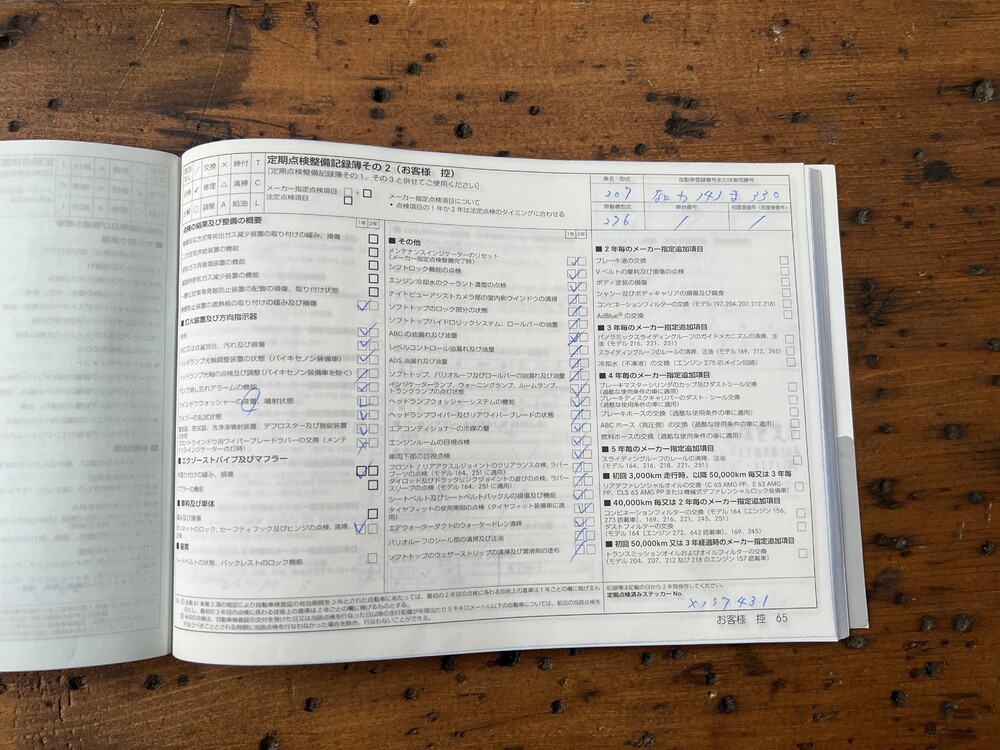 交換 × 締付 T
修理 △ 清掃 C
調整 A 給油 L
定期点検整備記録簿その2（お客様 控）
[定期点検整備記録簿その1、その3と併せてご使用ください]
メーカー指定点検項目 □+□
法定点検項目 □
メーカー指定点検項目について
・点検項目の1年か2年は法定点検のタイミングに合わせる
車名・型式
207
自動車登録番号または車両番号
なにわ 343 ま 330
原動機型式
276
車台番号
/
初度登録年
/
点検の結果及び整備の概要
1年 2年
取り付けの緩み、損傷
の機能
の機能
の機能
の配管の損傷、取り付け
の遮熱板の取り付けの緩み及び損傷
■ 灯火装置及び方向指示器
点灯又は点滅具合、汚れ及び損傷
ヘッドランプ光軸調整装置の状態（バイキセノン装備車）
ヘッドランプ光軸の点検及び調整（バイキセノン装備車を除く）
ランプ消し忘れアラームの機能
ウインドウウォッシャーの液量、噴射状態
ワイパーの払拭状態
フロントウインドウ用ワイパーブレードラバーの交換（メンテナンスインジケーター点灯時）
■ エグゾーストパイプ及びマフラー
取り付けの緩み、損傷
マフラーの機能
■ 車枠及び車体
緩み及び損傷
ボンネットのロック、セーフティフック及びヒンジの点検、清掃、
■ 座席
シートベルトの状態、バックレストのロック機能
1年 2年
■ その他
メンテナンスインジケーターのリセット
（メーカー指定点検整備完了時）
シフトロック機能の点検
エンジン冷却水のクーラント濃度の点検
ナイトビューアシストカメラ部の室内側ウインドウの清掃
ソフトトップのロック部分の状態
ソフトトップハイドロリックシステム、ロールバーの油量
ABCの油漏れ及び油量
レベルコントロール油漏れ及び油量
ADS油漏れ及び油量
ソフトトップ、バリオルーフ及びロールバーの油漏れ及び油量
インジケーターランプ、ウォーニングランプ、ルームランプ、
トランクランプの点灯状態
ヘッドランプウォッシャーシステムの機能
ヘッドランプワイパー及びリアワイパーブレードの状態
エアコンディショナーの冷媒の量
エンジンルームの目視点検
車両下部の目視点検
フロント / リアアクスルジョイントのクリアランス点検、ラバー
ブーツの点検（モデル 164, 251 に適用）
タイロッド及びドラッグリンクジョイントの遊びの点検、ラバー
スリーブの点検（モデル 164, 251 に適用）
シートベルト及びシートベルトバックルの損傷及び機能
タイヤフィットの使用期限の点検（タイヤフィット装備車に適
用）
エアウォーターダクトのウォータードレン清掃
バリオルーフのシール部の清掃及び注油
ソフトトップのウェザーストリップの清掃及び潤滑剤の塗布
■ 2年毎のメーカー指定追加項目
ブレーキ液の交換
Vベルトの摩耗及び損傷の点検
ボディ塗装の損傷
シャシー及びボディキャリアの損傷及び腐食
コンビネーションフィルターの交換（モデル 197, 204, 207, 212, 218）
AdBlue®の交換
■ 3年毎のメーカー指定追加項目
パノラミックスライディングルーフのガイドメカニズムの清掃、注
油（モデル 216, 221, 251）
スライディングルーフのレールの清掃、注油（モデル 169, 212, 245）
冷却水（不凍液）の交換（エンジン 275 のメイン回路）
■ 4年毎のメーカー指定追加項目
ブレーキマスターシリンダのカップ及びダストシール交換
（過酷な使用条件の車に適用）
ブレーキディスクキャリパーのダスト・シール交換
（過酷な使用条件の車に適用）
ブレーキホースの交換（過酷な使用条件の車に適用）
ABC ホース（高圧側）の交換（過酷な使用条件の車に適用）
燃料ホースの交換（過酷な使用条件の車に適用）
■ 5年毎のメーカー指定追加項目
スライディングルーフのレールの清掃、注油
（モデル 164, 216, 218, 221, 251）
■ 初回 3,000km 走行時、以降 50,000km 毎又は 3 年毎
リアデファレンシャルオイルの交換（C 63 AMG PP、E 63 AMG
PP、CLS 63 AMG PP または機械式デファレンシャルロック装備車）
■ 40,000km 毎又は 2 年毎のメーカー指定追加項目
コンビネーションフィルターの交換（モデル 164 [エンジン 156,
273 搭載車]、169, 216, 221, 245, 251）
ダストフィルターの交換
（モデル 164 [エンジン 272, 642 搭載車]、169, 245）
■ 初回 50,000km 又は 3 年経過時のメーカー指定追加項目
トランスミッションオイルおよびオイルフィルターの交換
（モデル 204, 207, 212 及び 218 のエンジン 157 搭載車）
記録簿は記載の日から2年間保存してください。
定期点検済みステッカー No.
X157431
お客様 控 65